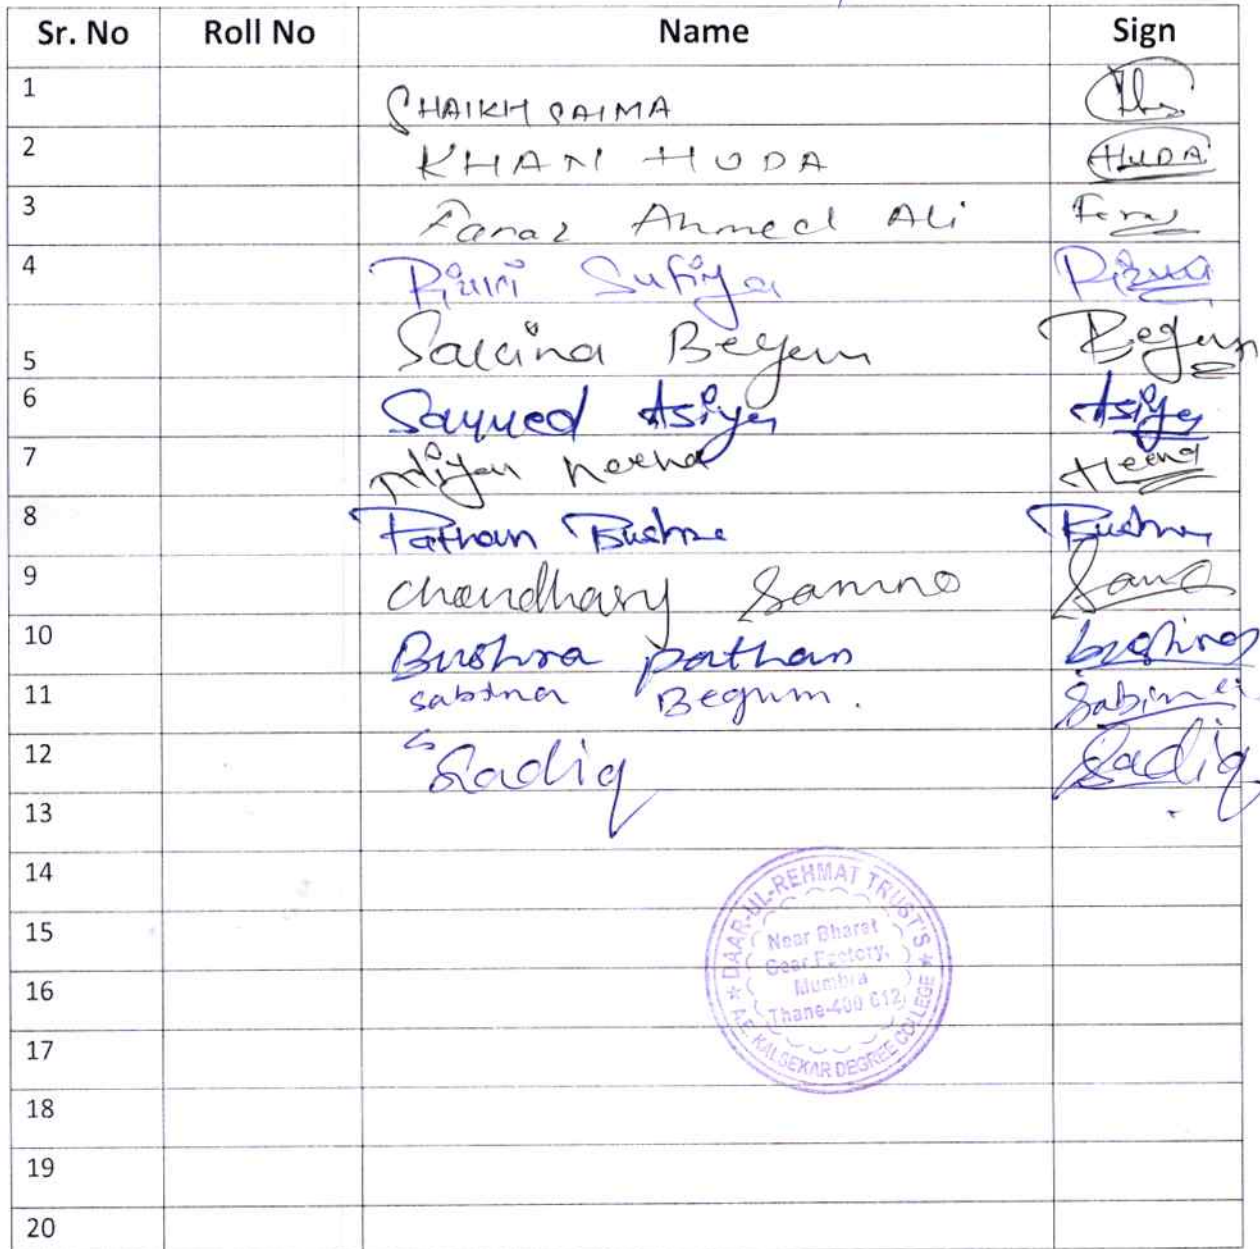 Sr. No Roll No Name Sign
1 SHAIKH SAIMA
2 KHAN HUDA HUDA
3 Faraz Ahmed Ali Feraz
4 Rizvi Sufiya Rizvi
5 Sakina Begum Begum
6 Sayyed Asiya Asiya
7 Heena Heena
8 Pathan Bushra Bushra
9 Choudhary Sana
10 Bushra pathan bushra
11 sabina Begum. Sabina
12 Sadiq Sadiq
13
14
15
16
17
18
19
20
★ DAAR-UL-REHMAT TRUST'S ★
A.E. KALSEKAR DEGREE COLLEGE
Near Bharat
Gear Factory,
Mumbra
Thane-400 612